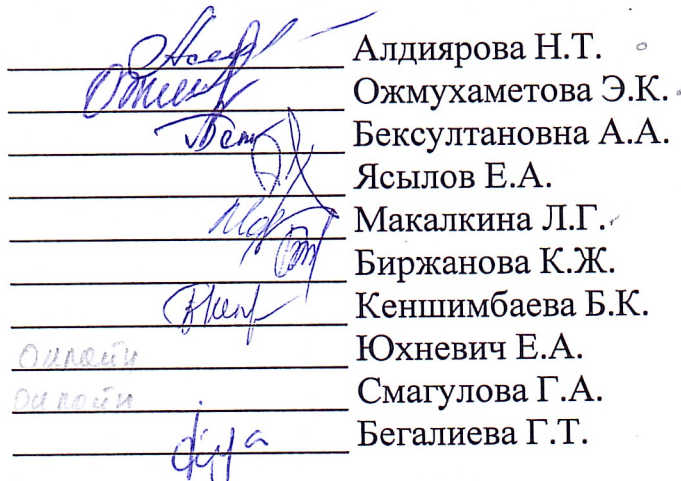 Алдиярова Н.Т.
Ожмухаметова Э.К.
Бексултановна А.А.
Ясылов Е.А.
Макалкина Л.Г.
Биржанова К.Ж.
Кеншимбаева Б.К.
Онлайн Юхневич Е.А.
Онлайн Смагулова Г.А.
Бегалиева Г.Т.